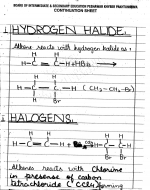 BOARD OF INTERMEDIATE & SECONDARY EDUCATION
CONTINUATION SHEET
HYDROGEN HALIDE.
Alkene reacts with hydrogen halide as :
H H
H-C=C-H+HBr→
H H
H-C-C-H (CH3-CH2-Br)
H Br
HALOGENS.
H H
H-C=C-H
Br Br
Alkenes reacts with Chlorine
in presence of carbon
tetrachloride (CCl4)